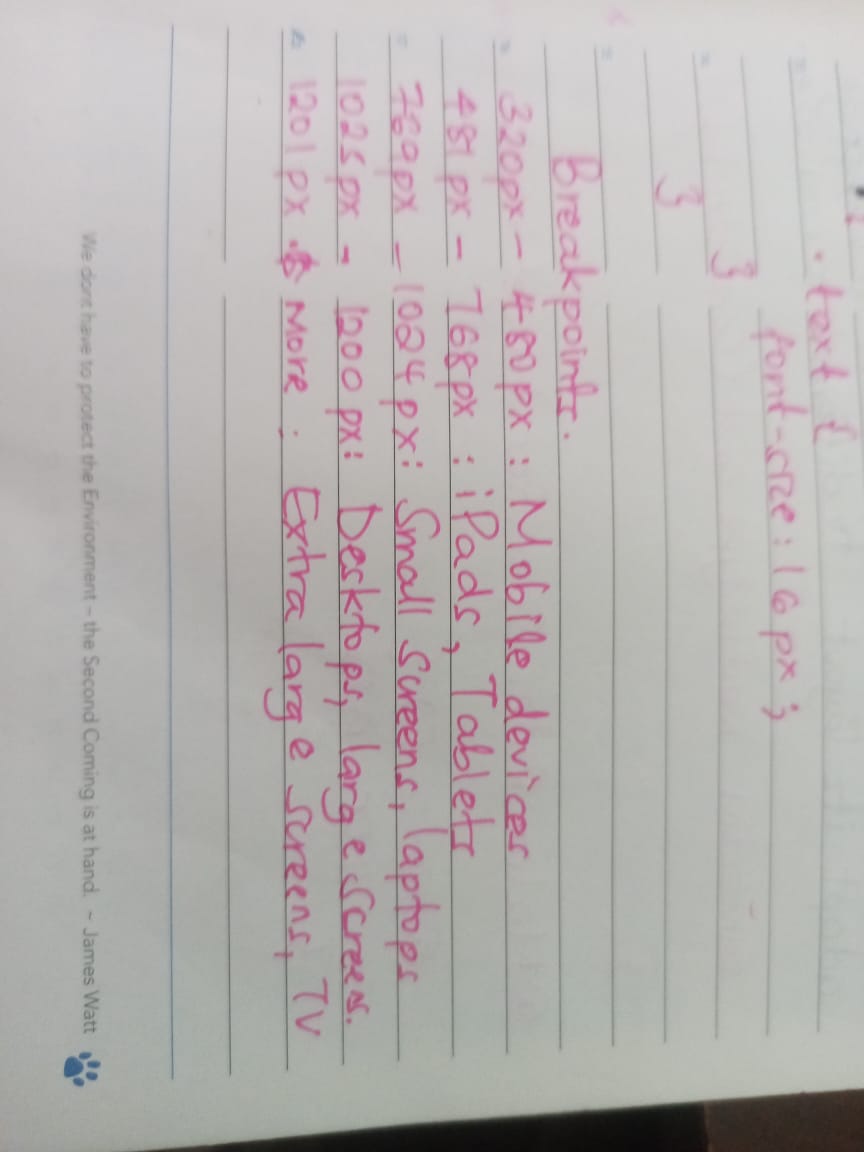 .text {
font-size: 16px;
}
}
Breakpoints.
320px - 480px : Mobile devices
481px - 768px : iPads, Tablets
769px - 1024px : Small screens, laptops
1025px - 1200px : Desktops, large screens.
1201px & More : Extra large screens, TV
We don't have to protect the Environment – the Second Coming is at hand. ~ James Watt